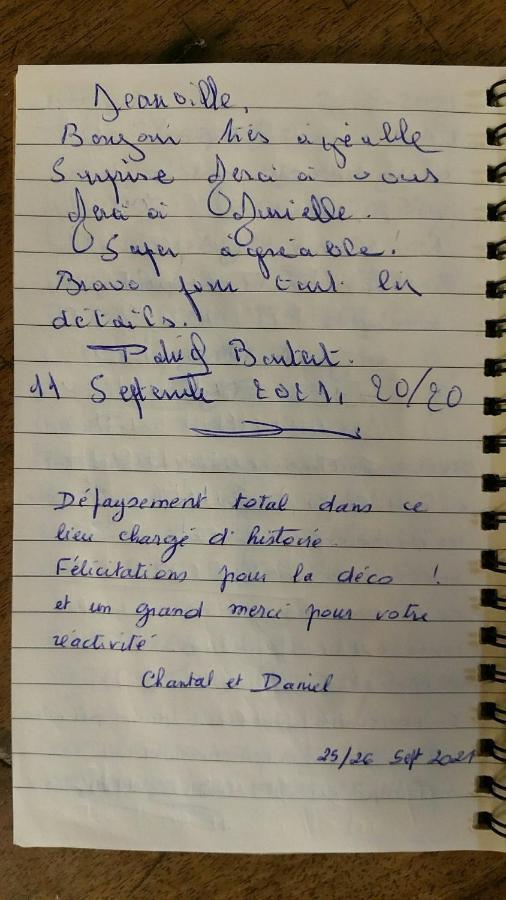 Jeanville,
Bonjour très agréable
Surprise Merci à vous
Merci à Murielle.
Super agréable.
Bravo pour tout les
détails.
11 Septembre 2021, 20/20
Dépaysement total dans ce
lieu chargé d'histoire.
Félicitations pour la déco !
et un grand merci pour votre
réactivité
Chantal et Daniel
25/26 Sept 2021